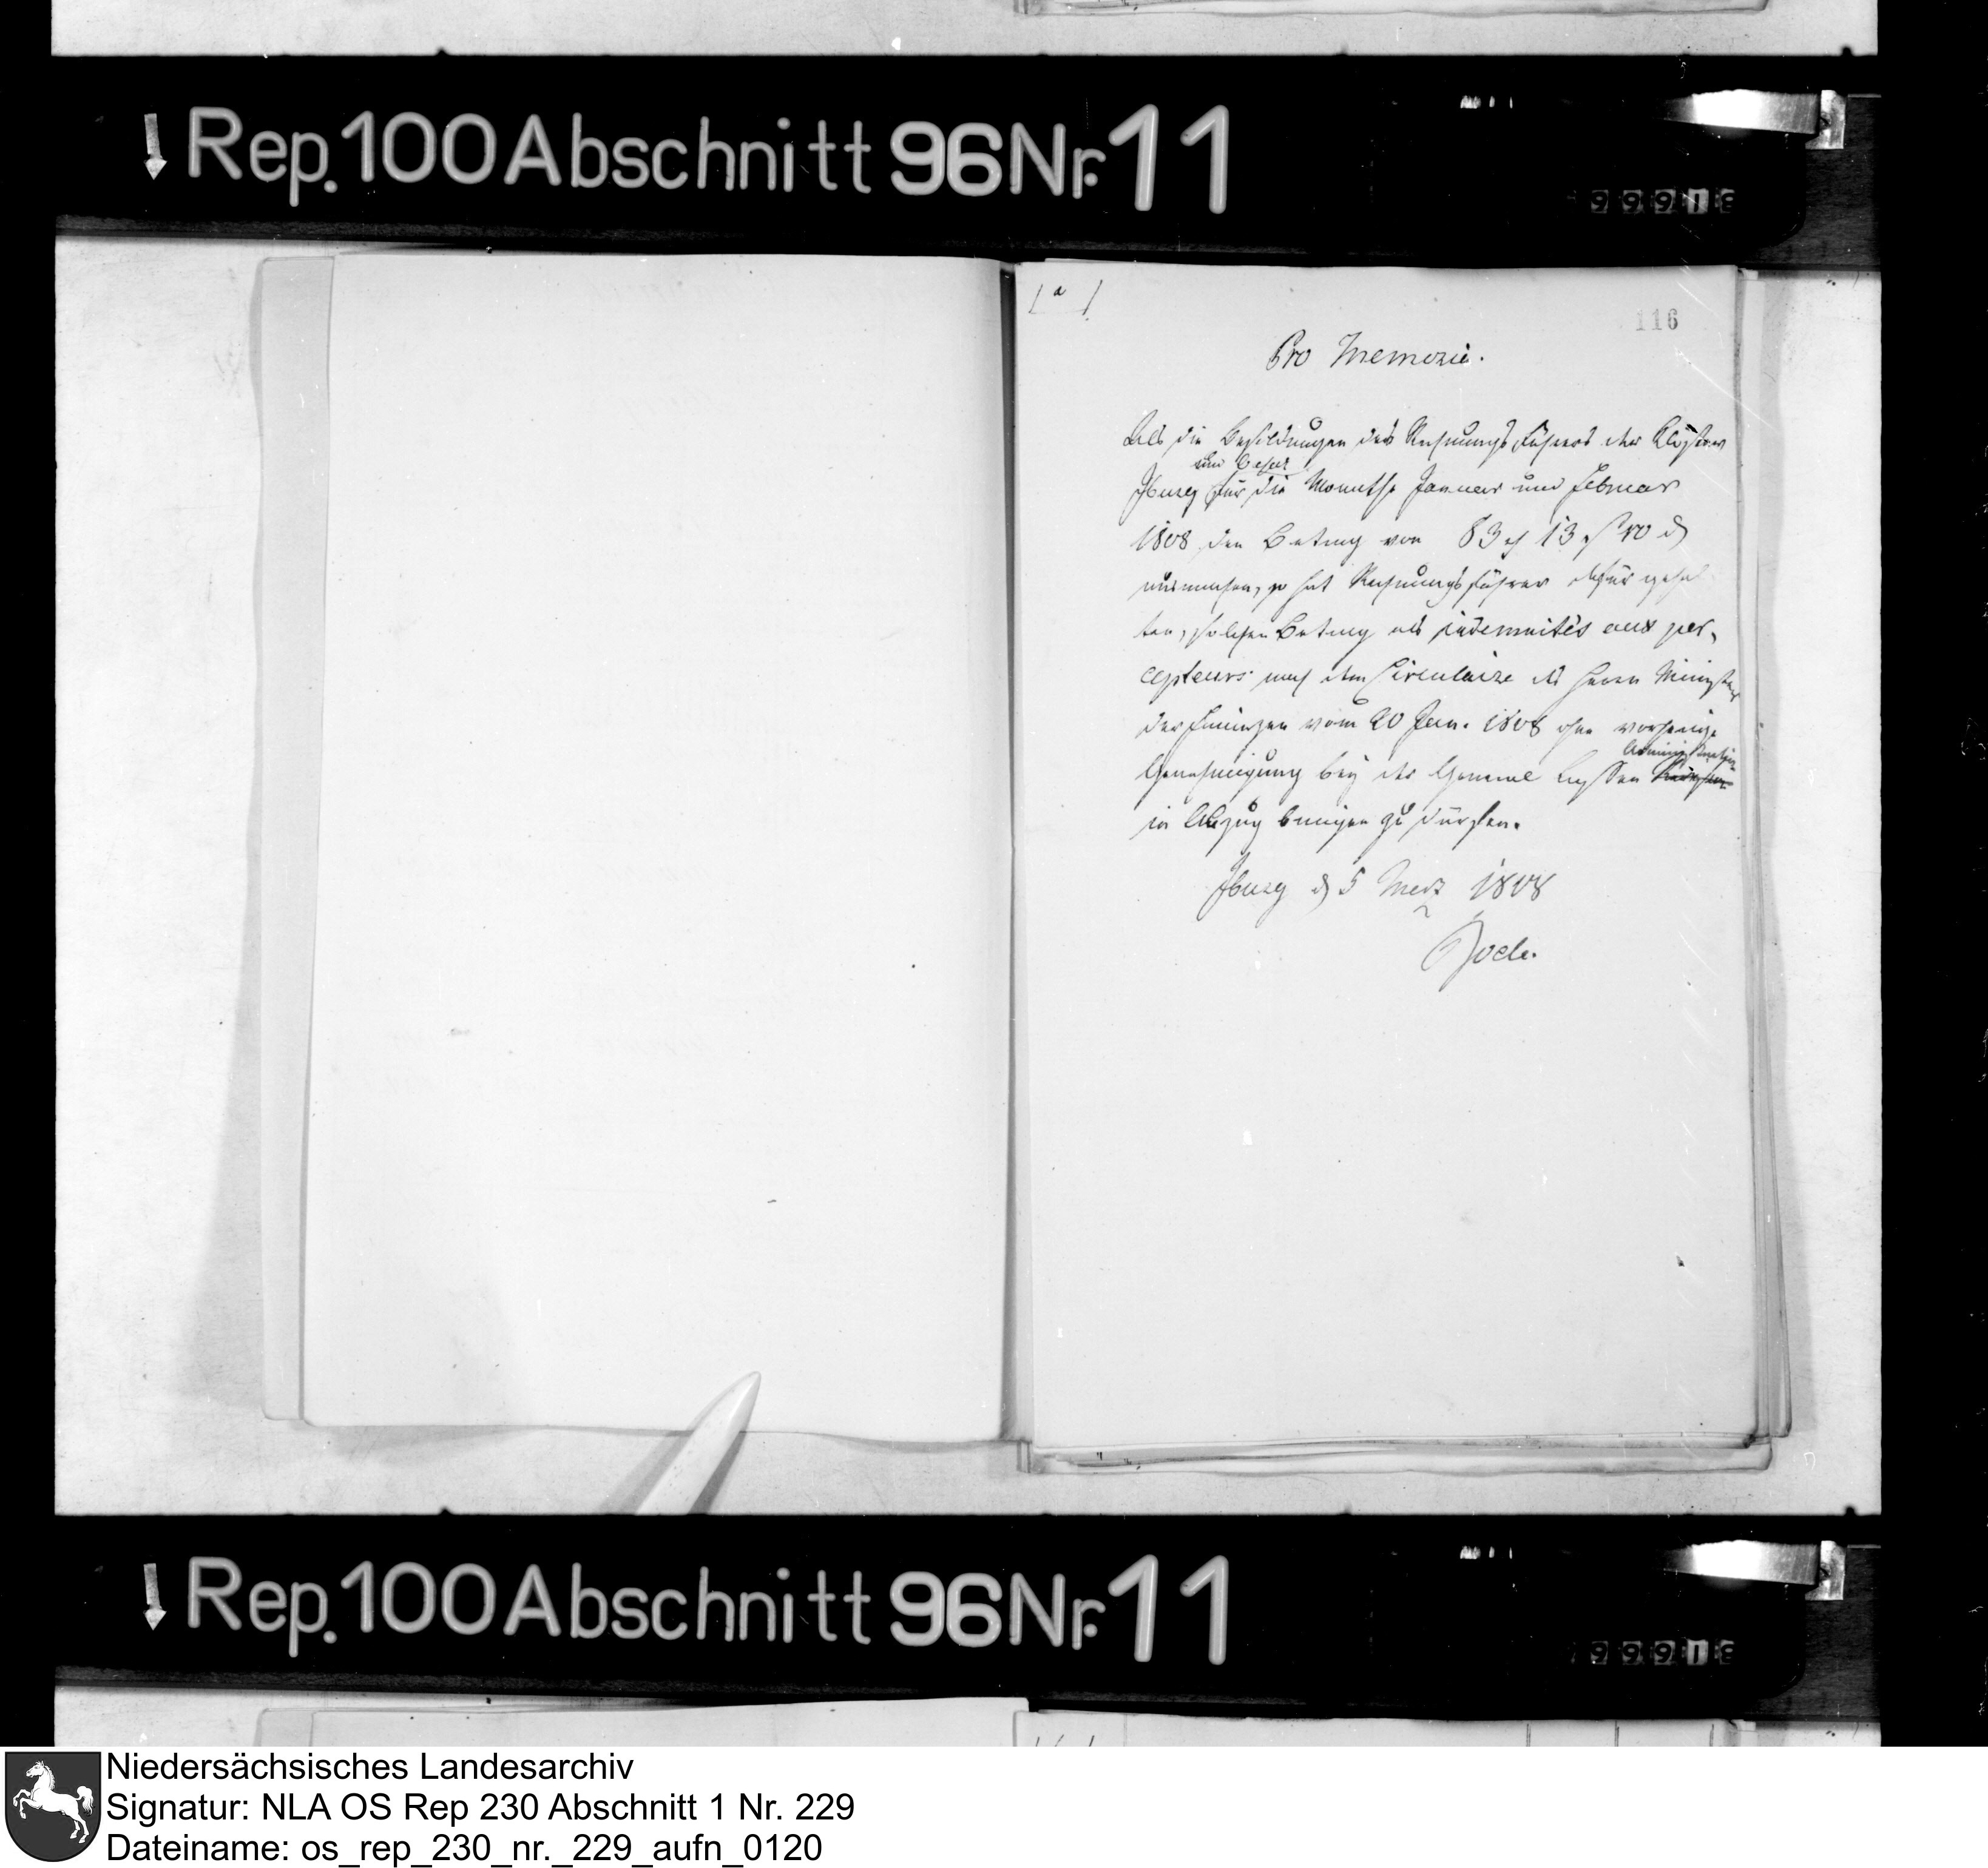 Rep. 100 Abschnitt 96 Nr. 11
116
Pro Memorie.
Als die Besoldungen des Rechnungsführers der Klöster
Iburg für die Monathe Januar und Februar
1808 den Betrag von 83 13
ausmachen, so hat Rechnungsführer dafür gehal
ten, solchen Betrag als indemnités aux per,
cepteurs nach dem Circulaire des Herrn Ministers
der Finanzen vom 20 Jan. 1808 ohne vorherige
Administration
Genehmigung bey der General Cassen
in Abzug bringen zu dürfen.
Iburg d 5 Merz 1808
Rep. 100 Abschnitt 96 Nr. 11
Niedersächsisches Landesarchiv
Signatur: NLA OS Rep 230 Abschnitt 1 Nr. 229
Dateiname: os_rep_230_nr._229_aufn_0120